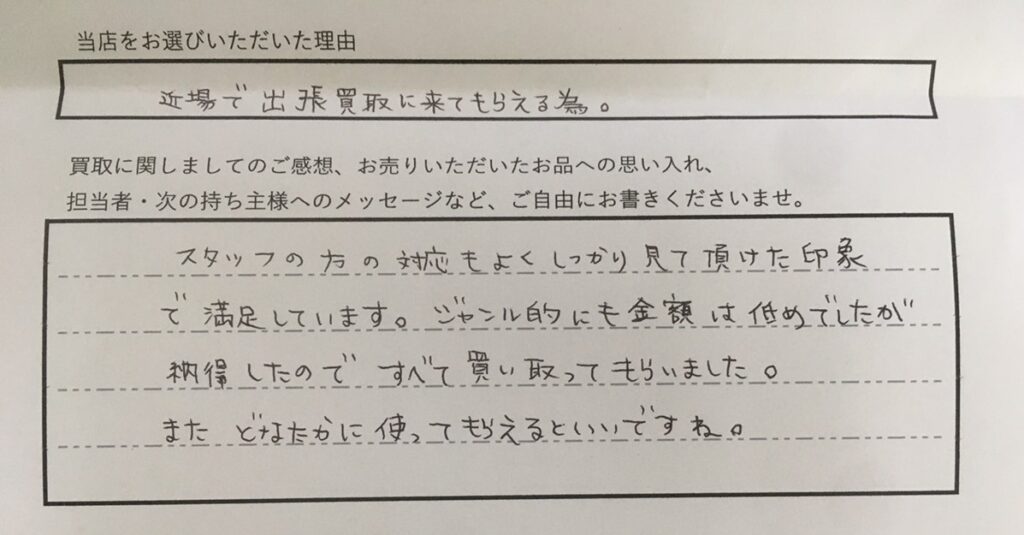 当店をお選びいただいた理由
近場で出張買取に来てもらえる為。
買取に関しましてのご感想、お売りいただいたお品への思い入れ、
担当者・次の持ち主様へのメッセージなど、ご自由にお書きくださいませ。
スタッフの方の対応もよくしっかり見て頂けた印象
で満足しています。ジャンル的にも金額は低めでしたが
納得したのですべて買い取ってもらいました。
またどなたかに使ってもらえるといいですね。